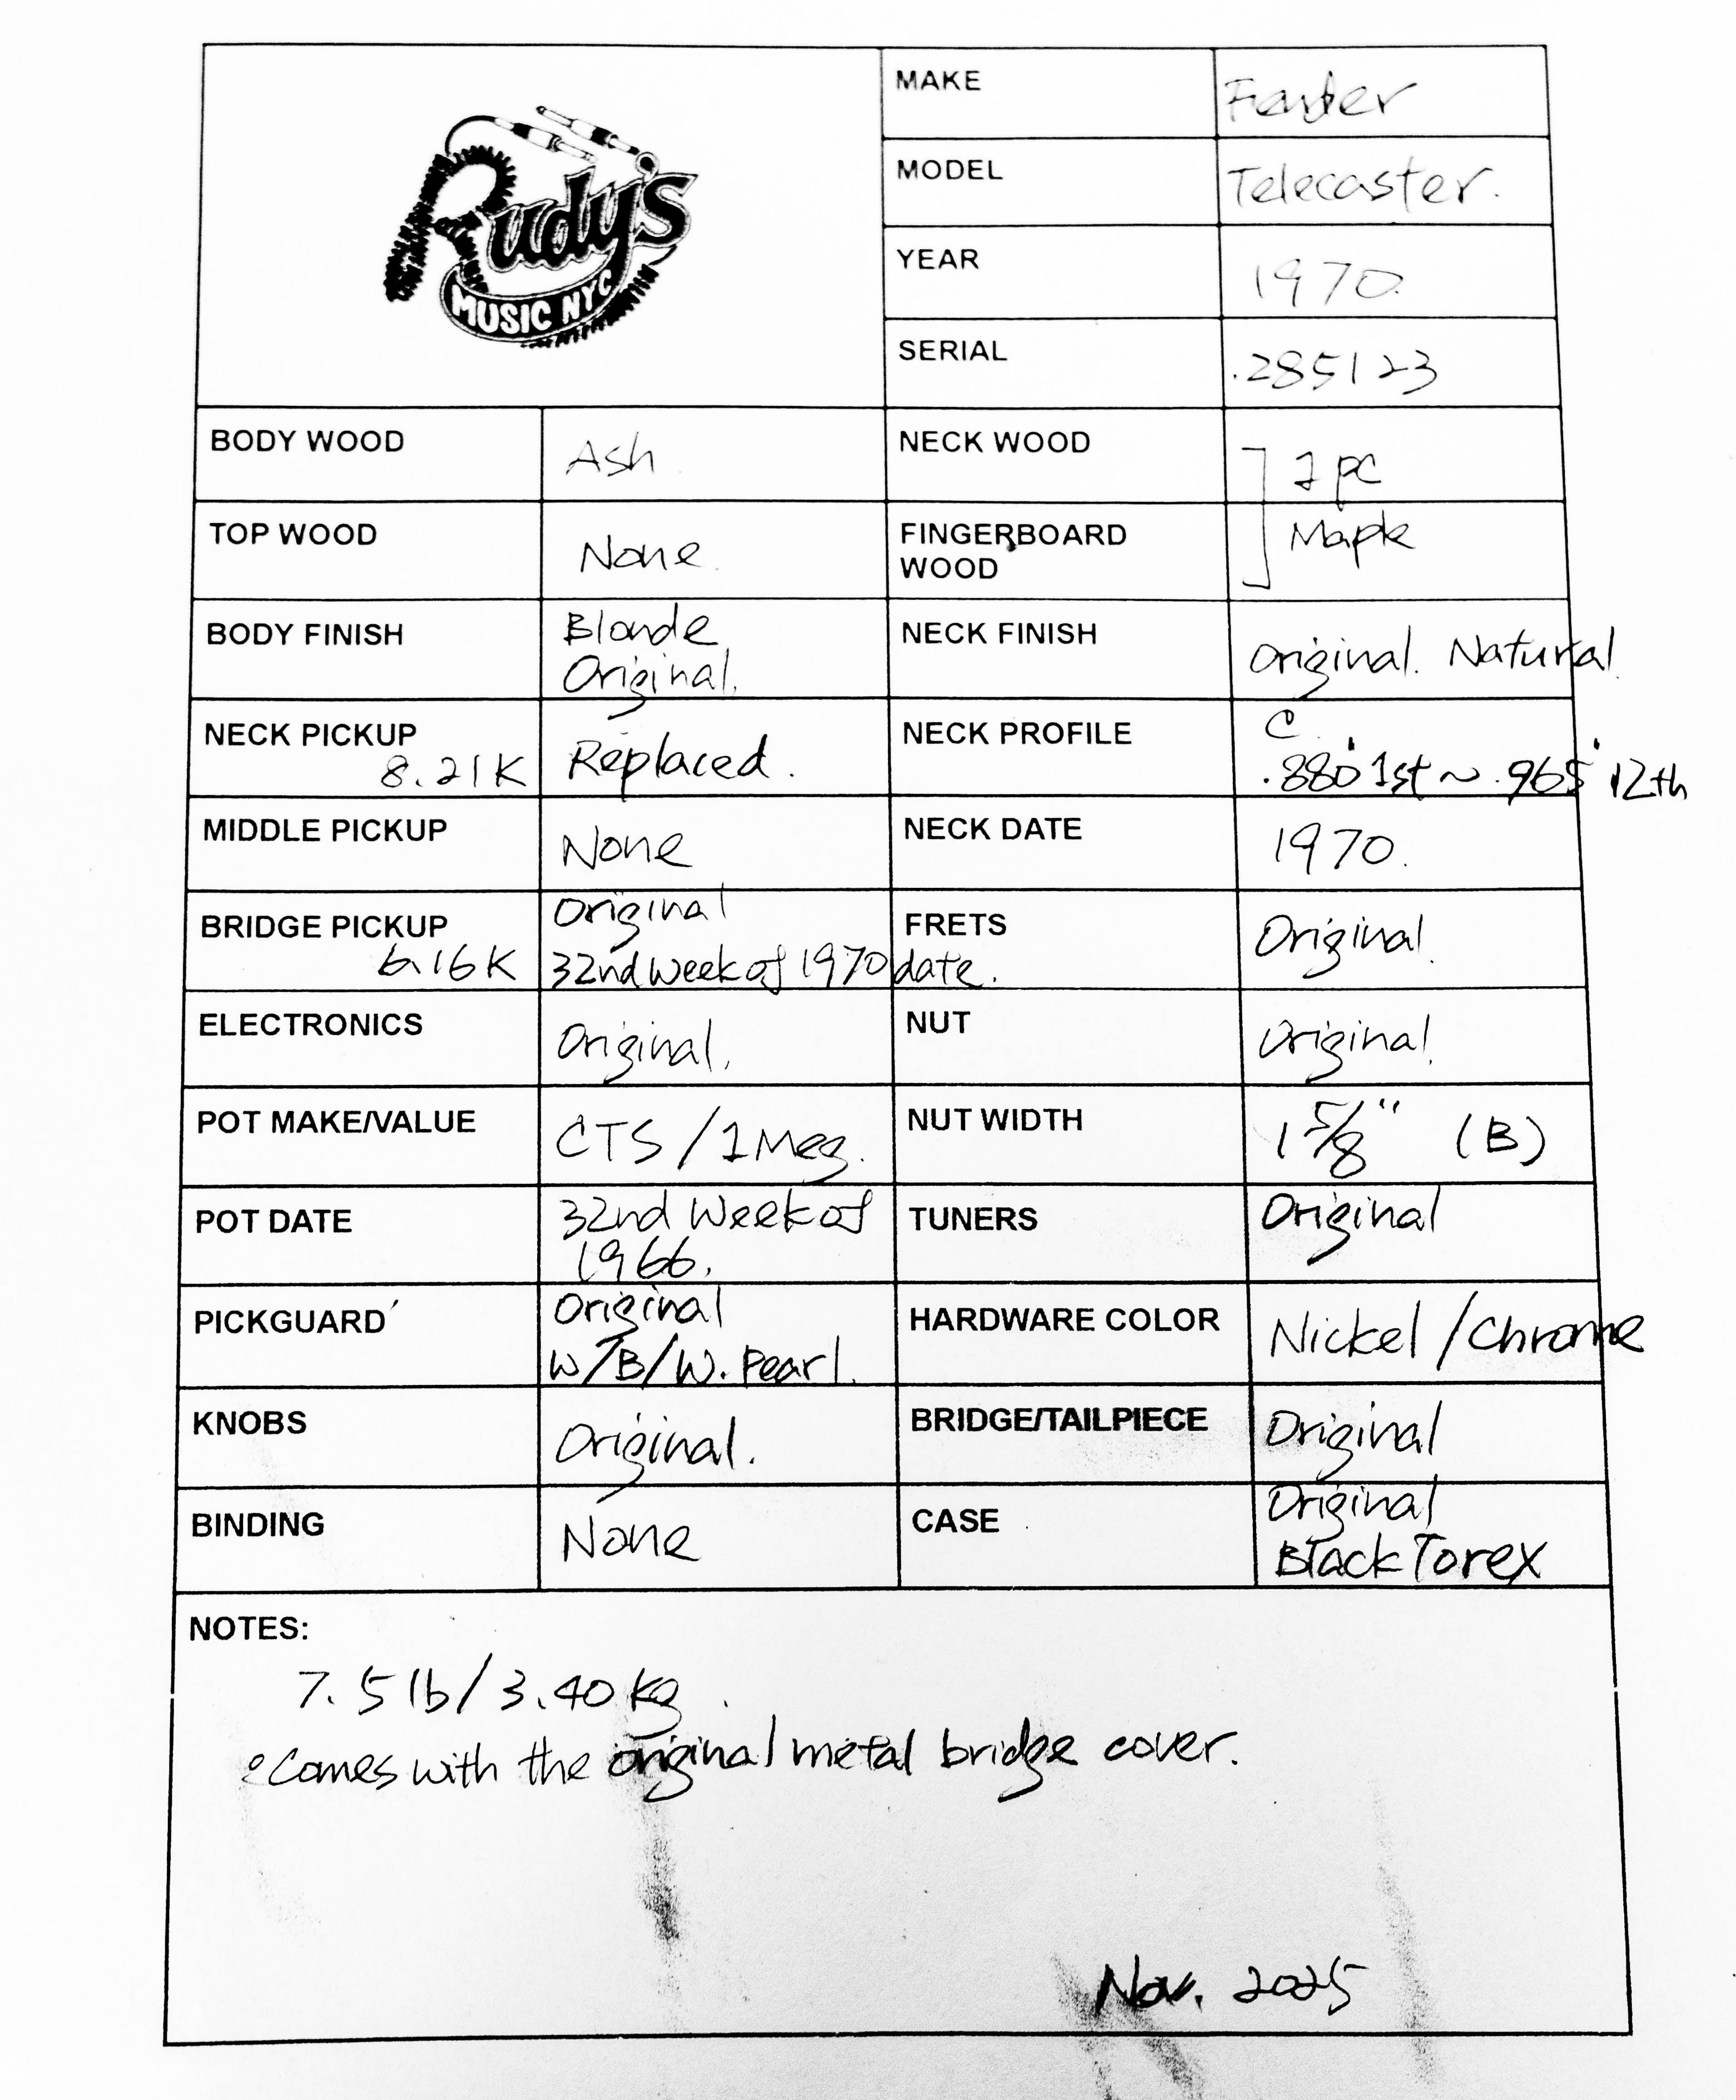 Rudy's
MUSIC NYC
MAKE Fender
MODEL Telecaster.
YEAR 1970.
SERIAL .285123
BODY WOOD Ash
NECK WOOD 1 pc
TOP WOOD None.
FINGERBOARD Maple
WOOD
BODY FINISH Blonde
Original.
NECK FINISH Original. Natural
NECK PICKUP
8.21K Replaced.
NECK PROFILE C
.880" 1st ~ .965" 12th
MIDDLE PICKUP None
NECK DATE 1970.
BRIDGE PICKUP Original
6.16K 32nd week of 1970 date.
FRETS Original.
ELECTRONICS Original.
NUT Original.
POT MAKE/VALUE CTS / 1 Meg.
NUT WIDTH 1 5/8" (B)
POT DATE 32nd Week of
1966.
TUNERS Original
PICKGUARD Original
W/B/W. Pearl.
HARDWARE COLOR Nickel / Chrome
KNOBS Original.
BRIDGE/TAILPIECE Original
BINDING None
CASE Original
Black Torex
NOTES:
7.5 lb / 3.40 kg.
Comes with the original metal bridge cover.
Nov. 2025